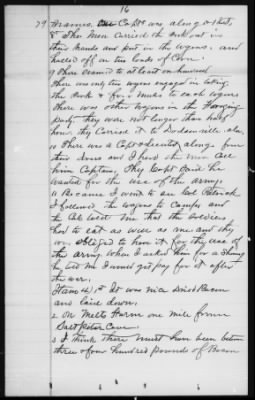 16
79 Names. Capt was along & that,
8 The Men carried the out in
their hands and put in the wagons. and
hauled off in two loads of Corn.
9 There seamed to at least on hundred
There was only two wagons engaged in taking
the Pork & four mules to each wagon
There was other wagons in the Foraging
party, they were not longer than half
hour, they Carried it to Dodsonville ala.
10 There was a Capt & Lieutent along four
then done and I herd the men call
him Captain, The Capt Said he
wanted for the use of the army.
11 Because I went to see Col Patrick
I followed the wagons to Camps and
the Col told me that the Soldiers
had to eat as well as me and they
was obliged to have it for the use of
the army. When I asked him for a Showing
he told me I would get pay for it after
the war.
Ham 4) 1st It was nice Sweet Bacon
and laid down.
2 on Melts Farm one mile from
Saltpeter Cave.
3 I think there must have been between
three & four hundred pounds of Bacon